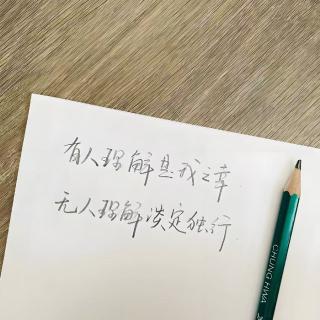 有人理解是我之幸
无人理解淡定独行
CHUNG HWA